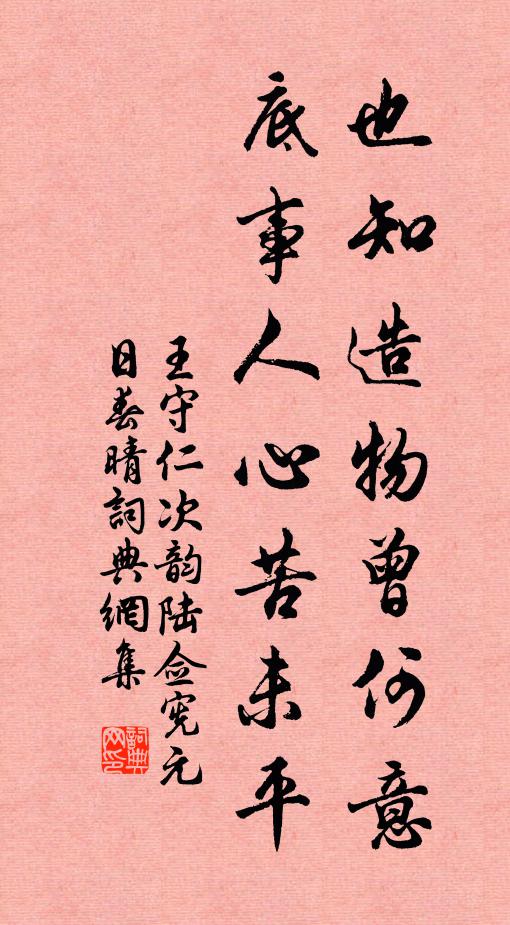 也知造物曾何意
底事人心苦未平
王守仁次韵陆佥宪元
日春晴詞典網集
詞典网印